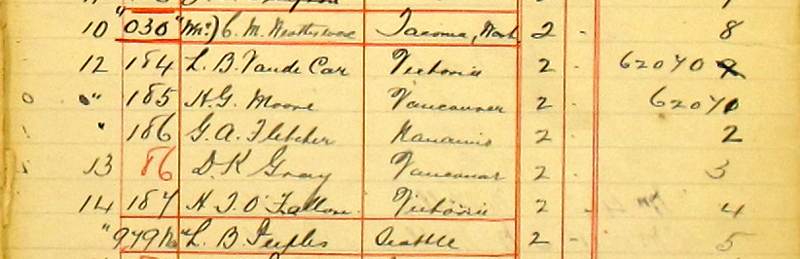 10 "030" Wn:) C. M. Weatherwax Tacoma, Wash 2 - 8
12 184 L. B. Vande Car Victoria 2 - 62070 9
" 185 H. G. Moore Vancouver 2 - 62071
" 186 G. A. Fletcher Nanaimo 2 - 2
13 86 D. K. Gray Vancouver 2 - 3
14 187 H. J. O'Fallon Victoria 2 4
" 979 L. B. Peeples Seattle 2 - 5